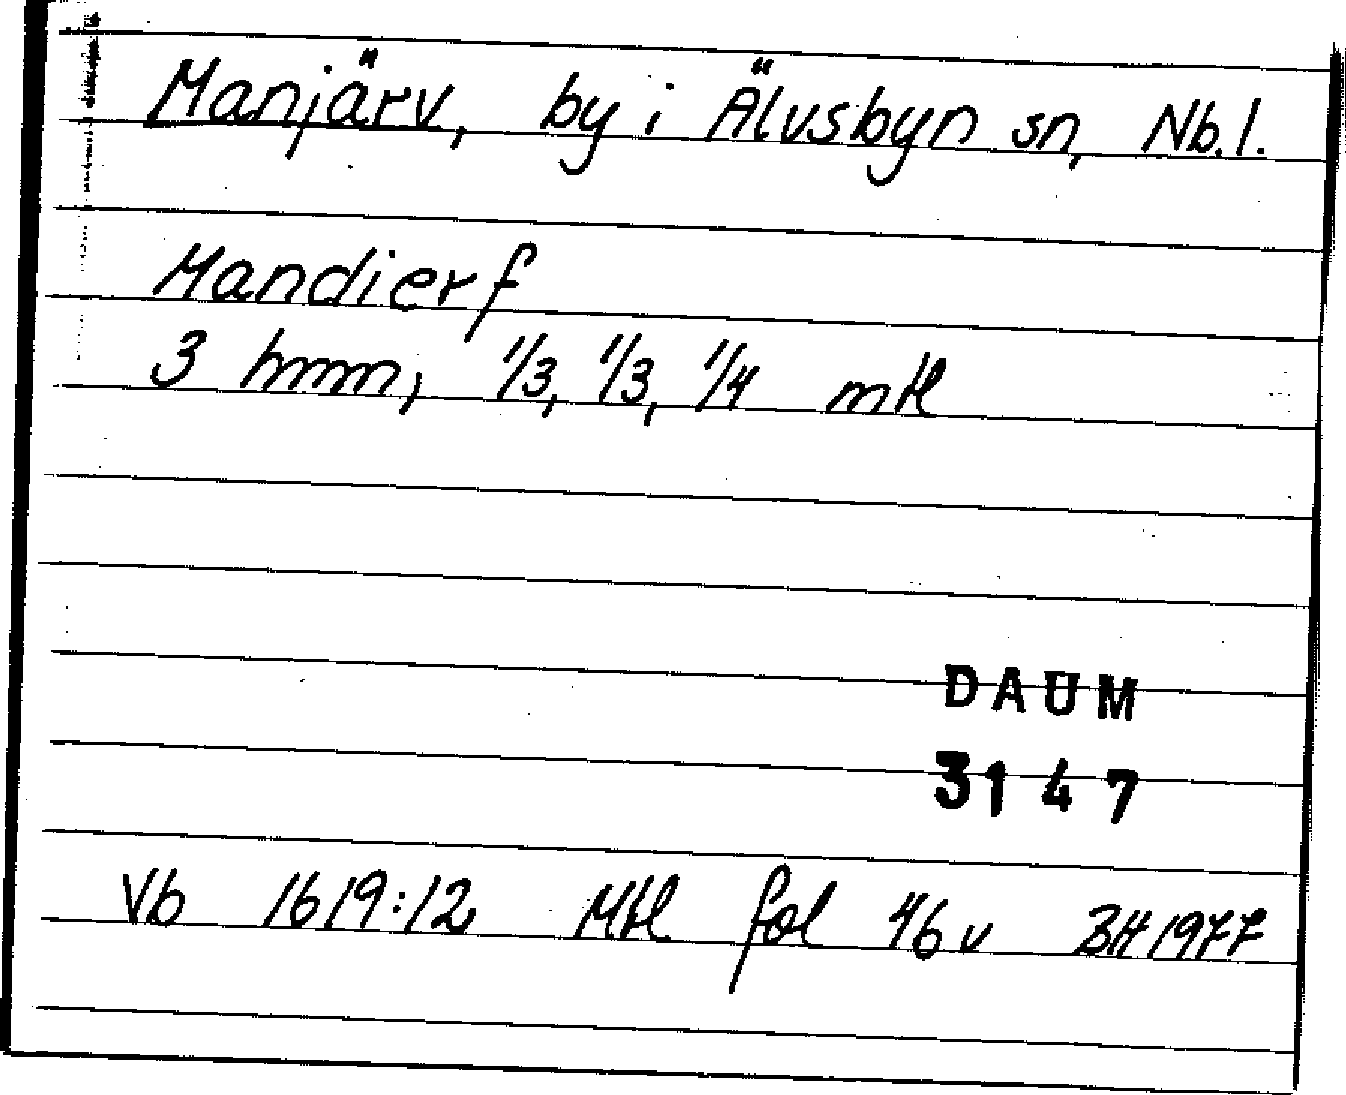 Manjärv, by i Älvsbyn sn, Nb. l.
Mandierf
3 hmn; 1/3, 1/3, 1/4 mtl
DAUM
3147
Vb 1619:12 Mtl fol 46 v BH 1977